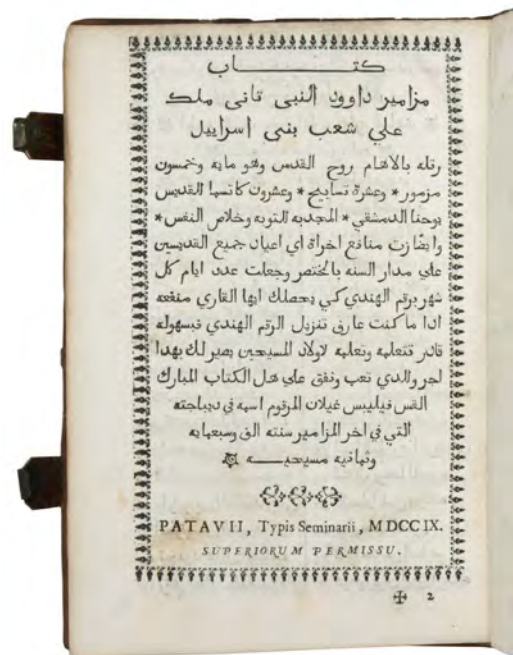 كتاب
مزامير داوود النبى تانى ملك
علي شعب بنى اسراييل
رتله بالاهام روح القدس وهو مايه وخمسون
مزمور * وعشرة تسابيح * وعشرون كاتسما القديس
يوحنا الدمشقي * المجدبه للتوبه وخلاص النفس *
وايضا زت منافع اخراة اي اعيان جميع القديسين
علي مدار السنه بالختصر وجعلت عدد ايام كل
شهر برقم الهندي كي يحصلك ايها القاري منفعه
ادا ما كنت عارف تنزيل الرقم الهندي فبسهوله
قادر تتعلمه وتعلمه لاولاد المسيحيين يصير لك بهدا
اجر والدي تعب ونفق علي هدا الكتاب المبارك
القس فيليبس غيلان المرقوم اسمه في ديباجته
التي في اخر المزامير سنته الف وسبعمايه
وثمانيه مسيحيه
PATAVII, Typis Seminarii, MDCCIX.
SUPERIORUM PERMISSU.
✠ 2